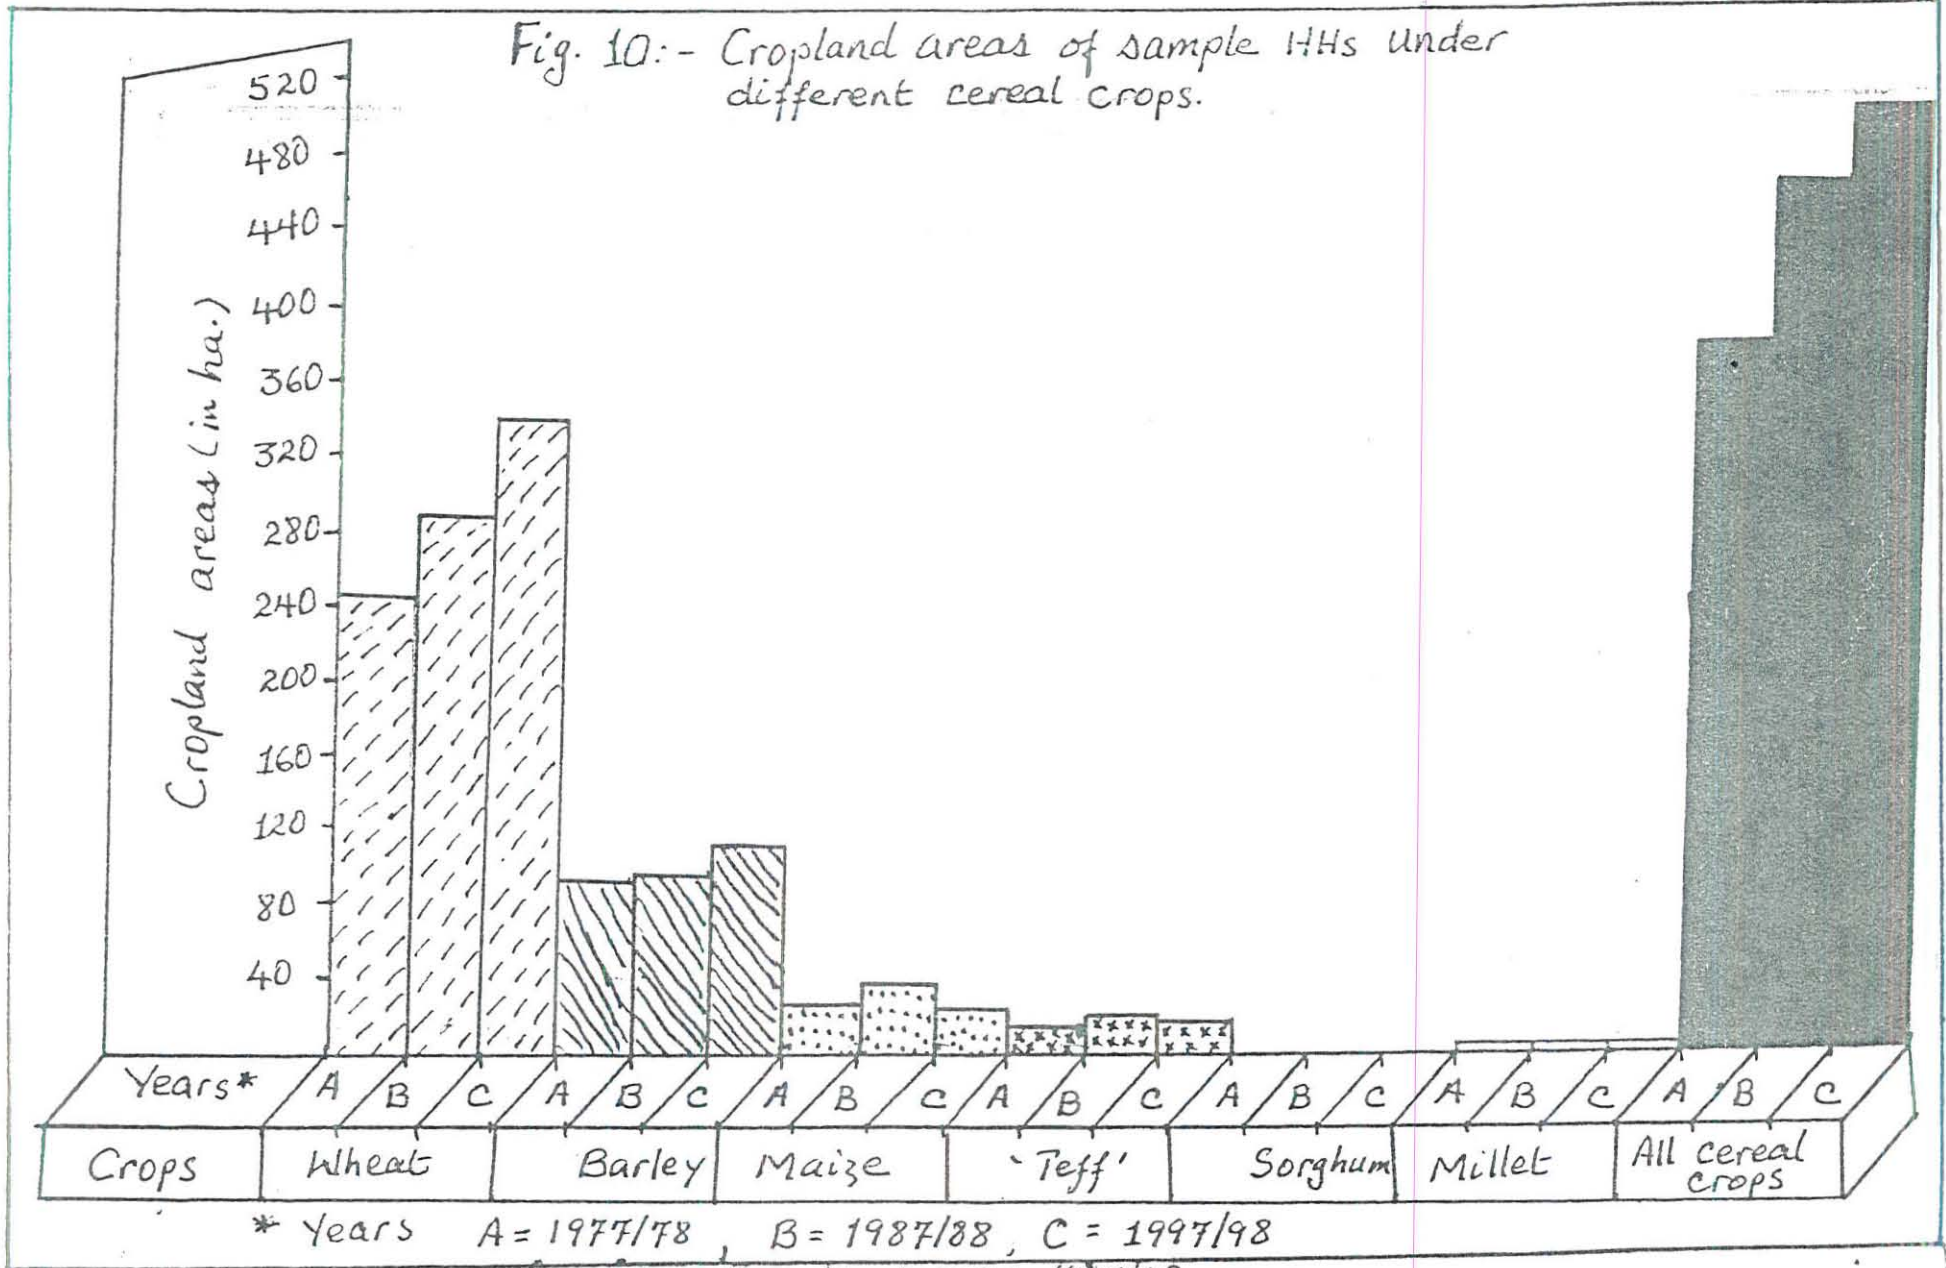 Fig. 10:- Cropland areas of sample HHs under
different cereal crops.
Cropland areas (in ha.)
520
480
440
400
360
320
280
240
200
160
120
80
40
Years* A B C A B C A B C A B C A B C A B C A B C
Crops Wheat Barley Maize 'Teff' Sorghum Millet All cereal crops
* Years A = 1977/78, B = 1987/88, C = 1997/98